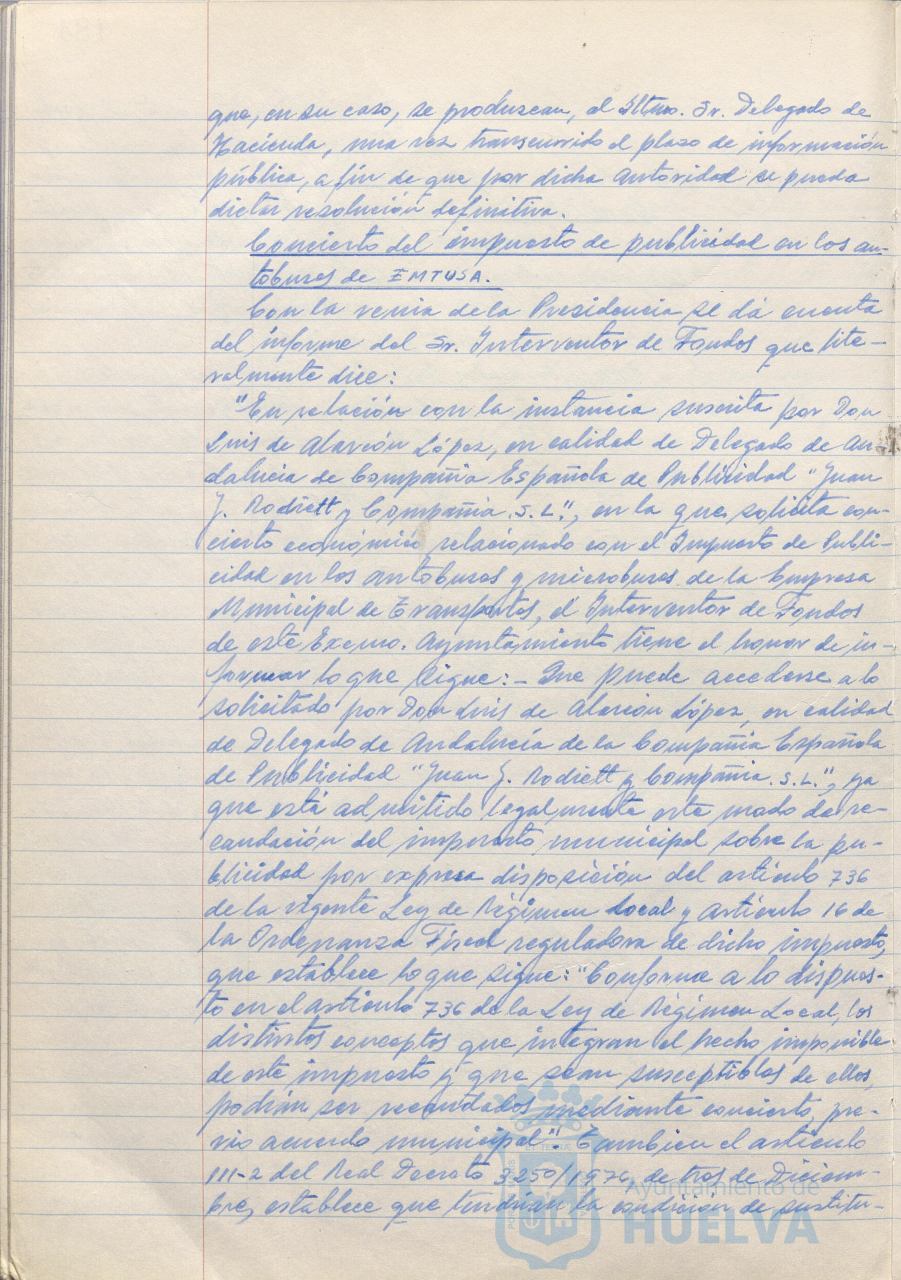 que, en su caso, se produzcan, al Iltmo. Sr. Delegado de
Hacienda, una vez transcurrido el plazo de información
pública, a fin de que por dicha autoridad se pueda
dictar resolución definitiva.
Concierto del impuesto de publicidad en los au-
tobuses de EMTUSA.
Con la venia de la Presidencia se dá cuenta
del informe del Sr. Interventor de Fondos que lite-
ralmente dice:
"En relación con la instancia suscrita por Don
Luis de Alarcón López, en calidad de Delegado de An-
dalucia de Compañia Española de Publicidad "Juan
J. Rodiett y Compañia S.L.", en la que solicita con-
cierto económico relacionado con el Impuesto de Publi-
cidad en los autobuses y microbuses de la Empresa
Municipal de Transportes, el Interventor de Fondos
de este Excmo. Ayuntamiento tiene el honor de in-
formar lo que sigue:- Que puede accederse a lo
solicitado por Don Luis de Alarcón López, en calidad
de Delegado de Andalucía de la Compañia Española
de Publicidad "Juan J. Rodiett y Compañia S.L.", ya
que está admitido legalmente este modo de re-
caudación del impuesto municipal sobre la pu-
blicidad por expresa disposición del artículo 736
de la vigente Ley de Régimen Local y artículo 16 de
la Ordenanza Fiscal reguladora de dicho impuesto,
que establece lo que sigue: "Conforme a lo dispues-
to en el artículo 736 de la Ley de Régimen Local, los
distintos conceptos que integran el hecho imponible
de este impuesto y que sean susceptibles de ellos,
podrán ser recaudados mediante concierto, pre-
vio acuerdo municipal". Tambien el artículo
111-2 del Real Decreto 3250/1976, de tres de Diciem-
bre, establece que tendrán la condición de sustitu-
Ayuntamiento de
HUELVA